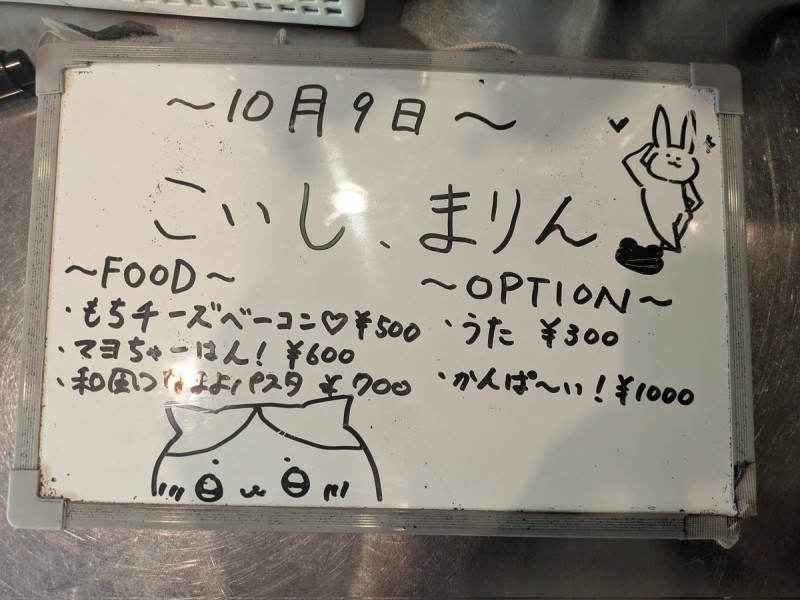 〜10月9日〜
こいし、まりん
〜FOOD〜
・もちチーズベーコン♡¥500
・マヨちゃーはん！¥600
・和風ツナまよパスタ ¥700
〜OPTION〜
・うた ¥300
・かんぱ〜い！¥1000